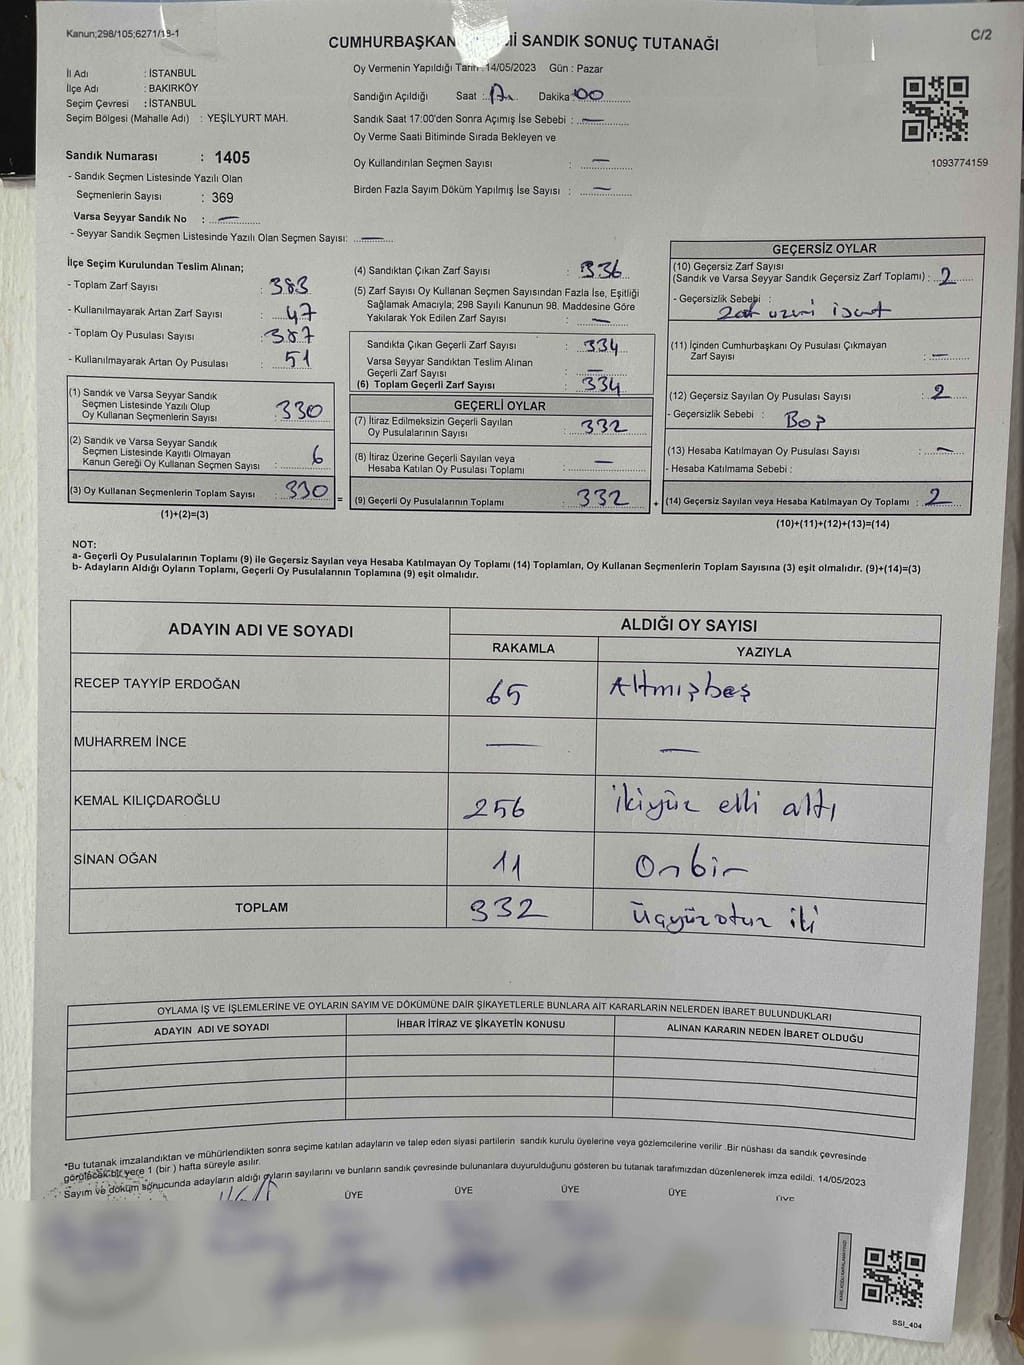 Kanun;298/105;6271/18-1
C/2
CUMHURBAŞKAN Mİ SANDIK SONUÇ TUTANAĞI
İl Adı : İSTANBUL
İlçe Adı : BAKIRKÖY
Seçim Çevresi : İSTANBUL
Seçim Bölgesi (Mahalle Adı) : YEŞİLYURT MAH.
Sandık Numarası : 1405
- Sandık Seçmen Listesinde Yazılı Olan
Seçmenlerin Sayısı : 369
Varsa Seyyar Sandık No : —
- Seyyar Sandık Seçmen Listesinde Yazılı Olan Seçmen Sayısı: —
Oy Vermenin Yapıldığı Tarih 14/05/2023 Gün : Pazar
Sandığın Açıldığı Saat : Dakika : 00
Sandık Saat 17:00'den Sonra Açımış İse Sebebi : —
Oy Verme Saati Bitiminde Sırada Bekleyen ve
Oy Kullandırılan Seçmen Sayısı : —
Birden Fazla Sayım Döküm Yapılmış İse Sayısı : —
1093774159
İlçe Seçim Kurulundan Teslim Alınan;
- Toplam Zarf Sayısı : 383
- Kullanılmayarak Artan Zarf Sayısı : 47
- Toplam Oy Pusulası Sayısı : 387
- Kullanılmayarak Artan Oy Pusulası : 51
(1) Sandık ve Varsa Seyyar Sandık
Seçmen Listesinde Yazılı Olup
Oy Kullanan Seçmenlerin Sayısı : 330
(2) Sandık ve Varsa Seyyar Sandık
Seçmen Listesinde Kayıtlı Olmayan
Kanun Gereği Oy Kullanan Seçmen Sayısı : 6
(3) Oy Kullanan Seçmenlerin Toplam Sayısı : 330
(1)+(2)=(3)
=
(4) Sandıktan Çıkan Zarf Sayısı : 336
(5) Zarf Sayısı Oy Kullanan Seçmen Sayısından Fazla İse, Eşitliği
Sağlamak Amacıyla; 298 Sayılı Kanunun 98. Maddesine Göre
Yakılarak Yok Edilen Zarf Sayısı : —
Sandıkta Çıkan Geçerli Zarf Sayısı : 334
Varsa Seyyar Sandıktan Teslim Alınan
Geçerli Zarf Sayısı : —
(6) Toplam Geçerli Zarf Sayısı : 334
GEÇERLİ OYLAR
(7) İtiraz Edilmeksizin Geçerli Sayılan
Oy Pusulalarının Sayısı : 332
(8) İtiraz Üzerine Geçerli Sayılan veya
Hesaba Katılan Oy Pusulası Toplamı : —
(9) Geçerli Oy Pusulalarının Toplamı : 332
+
GEÇERSİZ OYLAR
(10) Geçersiz Zarf Sayısı
(Sandık ve Varsa Seyyar Sandık Geçersiz Zarf Toplamı) : 2
- Geçersizlik Sebebi :
Zarf üzeri işaret
(11) İçinden Cumhurbaşkanı Oy Pusulası Çıkmayan
Zarf Sayısı : —
(12) Geçersiz Sayılan Oy Pusulası Sayısı : 2
- Geçersizlik Sebebi : Boş
(13) Hesaba Katılmayan Oy Pusulası Sayısı : —
- Hesaba Katılmama Sebebi :
(14) Geçersiz Sayılan veya Hesaba Katılmayan Oy Toplamı : 2
(10)+(11)+(12)+(13)=(14)
NOT:
a- Geçerli Oy Pusulalarının Toplamı (9) ile Geçersiz Sayılan veya Hesaba Katılmayan Oy Toplamı (14) Toplamları, Oy Kullanan Seçmenlerin Toplam Sayısına (3) eşit olmalıdır. (9)+(14)=(3)
b- Adayların Aldığı Oyların Toplamı, Geçerli Oy Pusulalarının Toplamına (9) eşit olmalıdır.
ADAYIN ADI VE SOYADI
ALDIĞI OY SAYISI
RAKAMLA YAZIYLA
RECEP TAYYİP ERDOĞAN 65 Altmışbeş
MUHARREM İNCE — —
KEMAL KILIÇDAROĞLU 256 ikiyüz elli altı
SİNAN OĞAN 11 Onbir
TOPLAM 332 Üçyüzotuz iki
OYLAMA İŞ VE İŞLEMLERİNE VE OYLARIN SAYIM VE DÖKÜMÜNE DAİR ŞİKAYETLERLE BUNLARA AİT KARARLARIN NELERDEN İBARET BULUNDUKLARI
ADAYIN ADI VE SOYADI İHBAR İTİRAZ VE ŞİKAYETİN KONUSU ALINAN KARARIN NEDEN İBARET OLDUĞU
*Bu tutanak imzalandıktan ve mühürlendikten sonra seçime katılan adayların ve talep eden siyasi partilerin sandık kurulu üyelerine veya gözlemcilerine verilir .Bir nüshası da sandık çevresinde
görülecek bir yere 1 (bir ) hafta süreyle asılır.
Sayım ve döküm sonucunda adayların aldığı oyların sayılarını ve bunların sandık çevresinde bulunanlara duyurulduğunu gösteren bu tutanak tarafımızdan düzenlenerek imza edildi. 14/05/2023
ÜYE ÜYE ÜYE ÜYE ÜYE
SSI_404